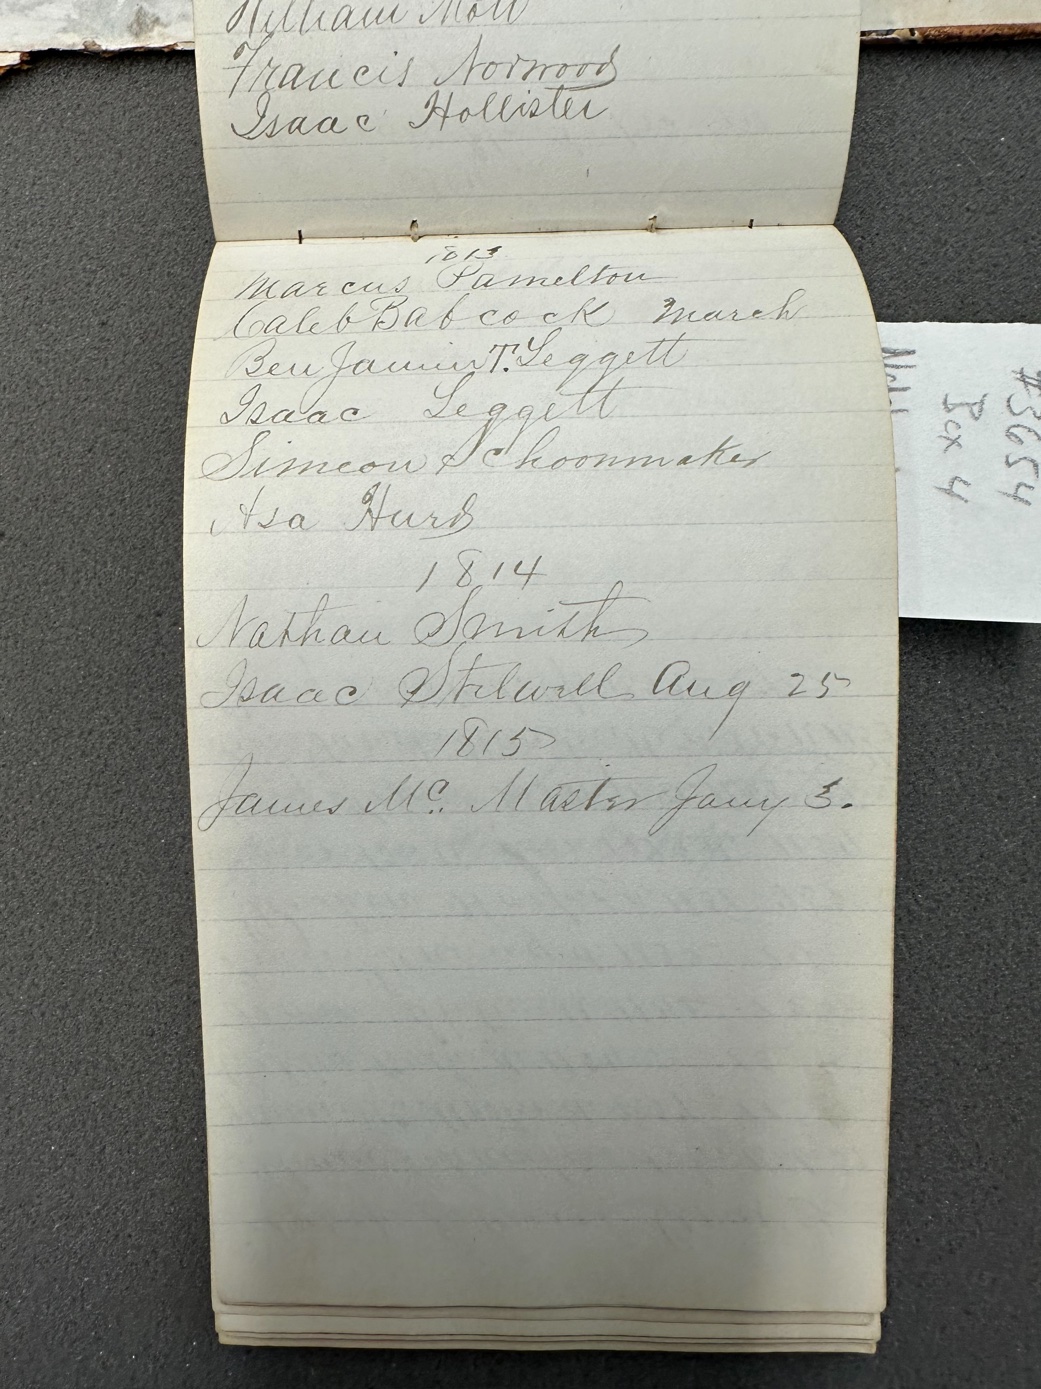 William Mott
Francis Norwood
Isaac Hollister
1813
Marcus Pamelton
Caleb Babcock March
BenJamin T. Leggett
Isaac Leggett
Simeon Schoonmaker
Asa Hurd
1814
Nathan Smith
Isaac Stilwell Aug 25
1815
James Mc. Master Jany 3.
#3654
Box 4